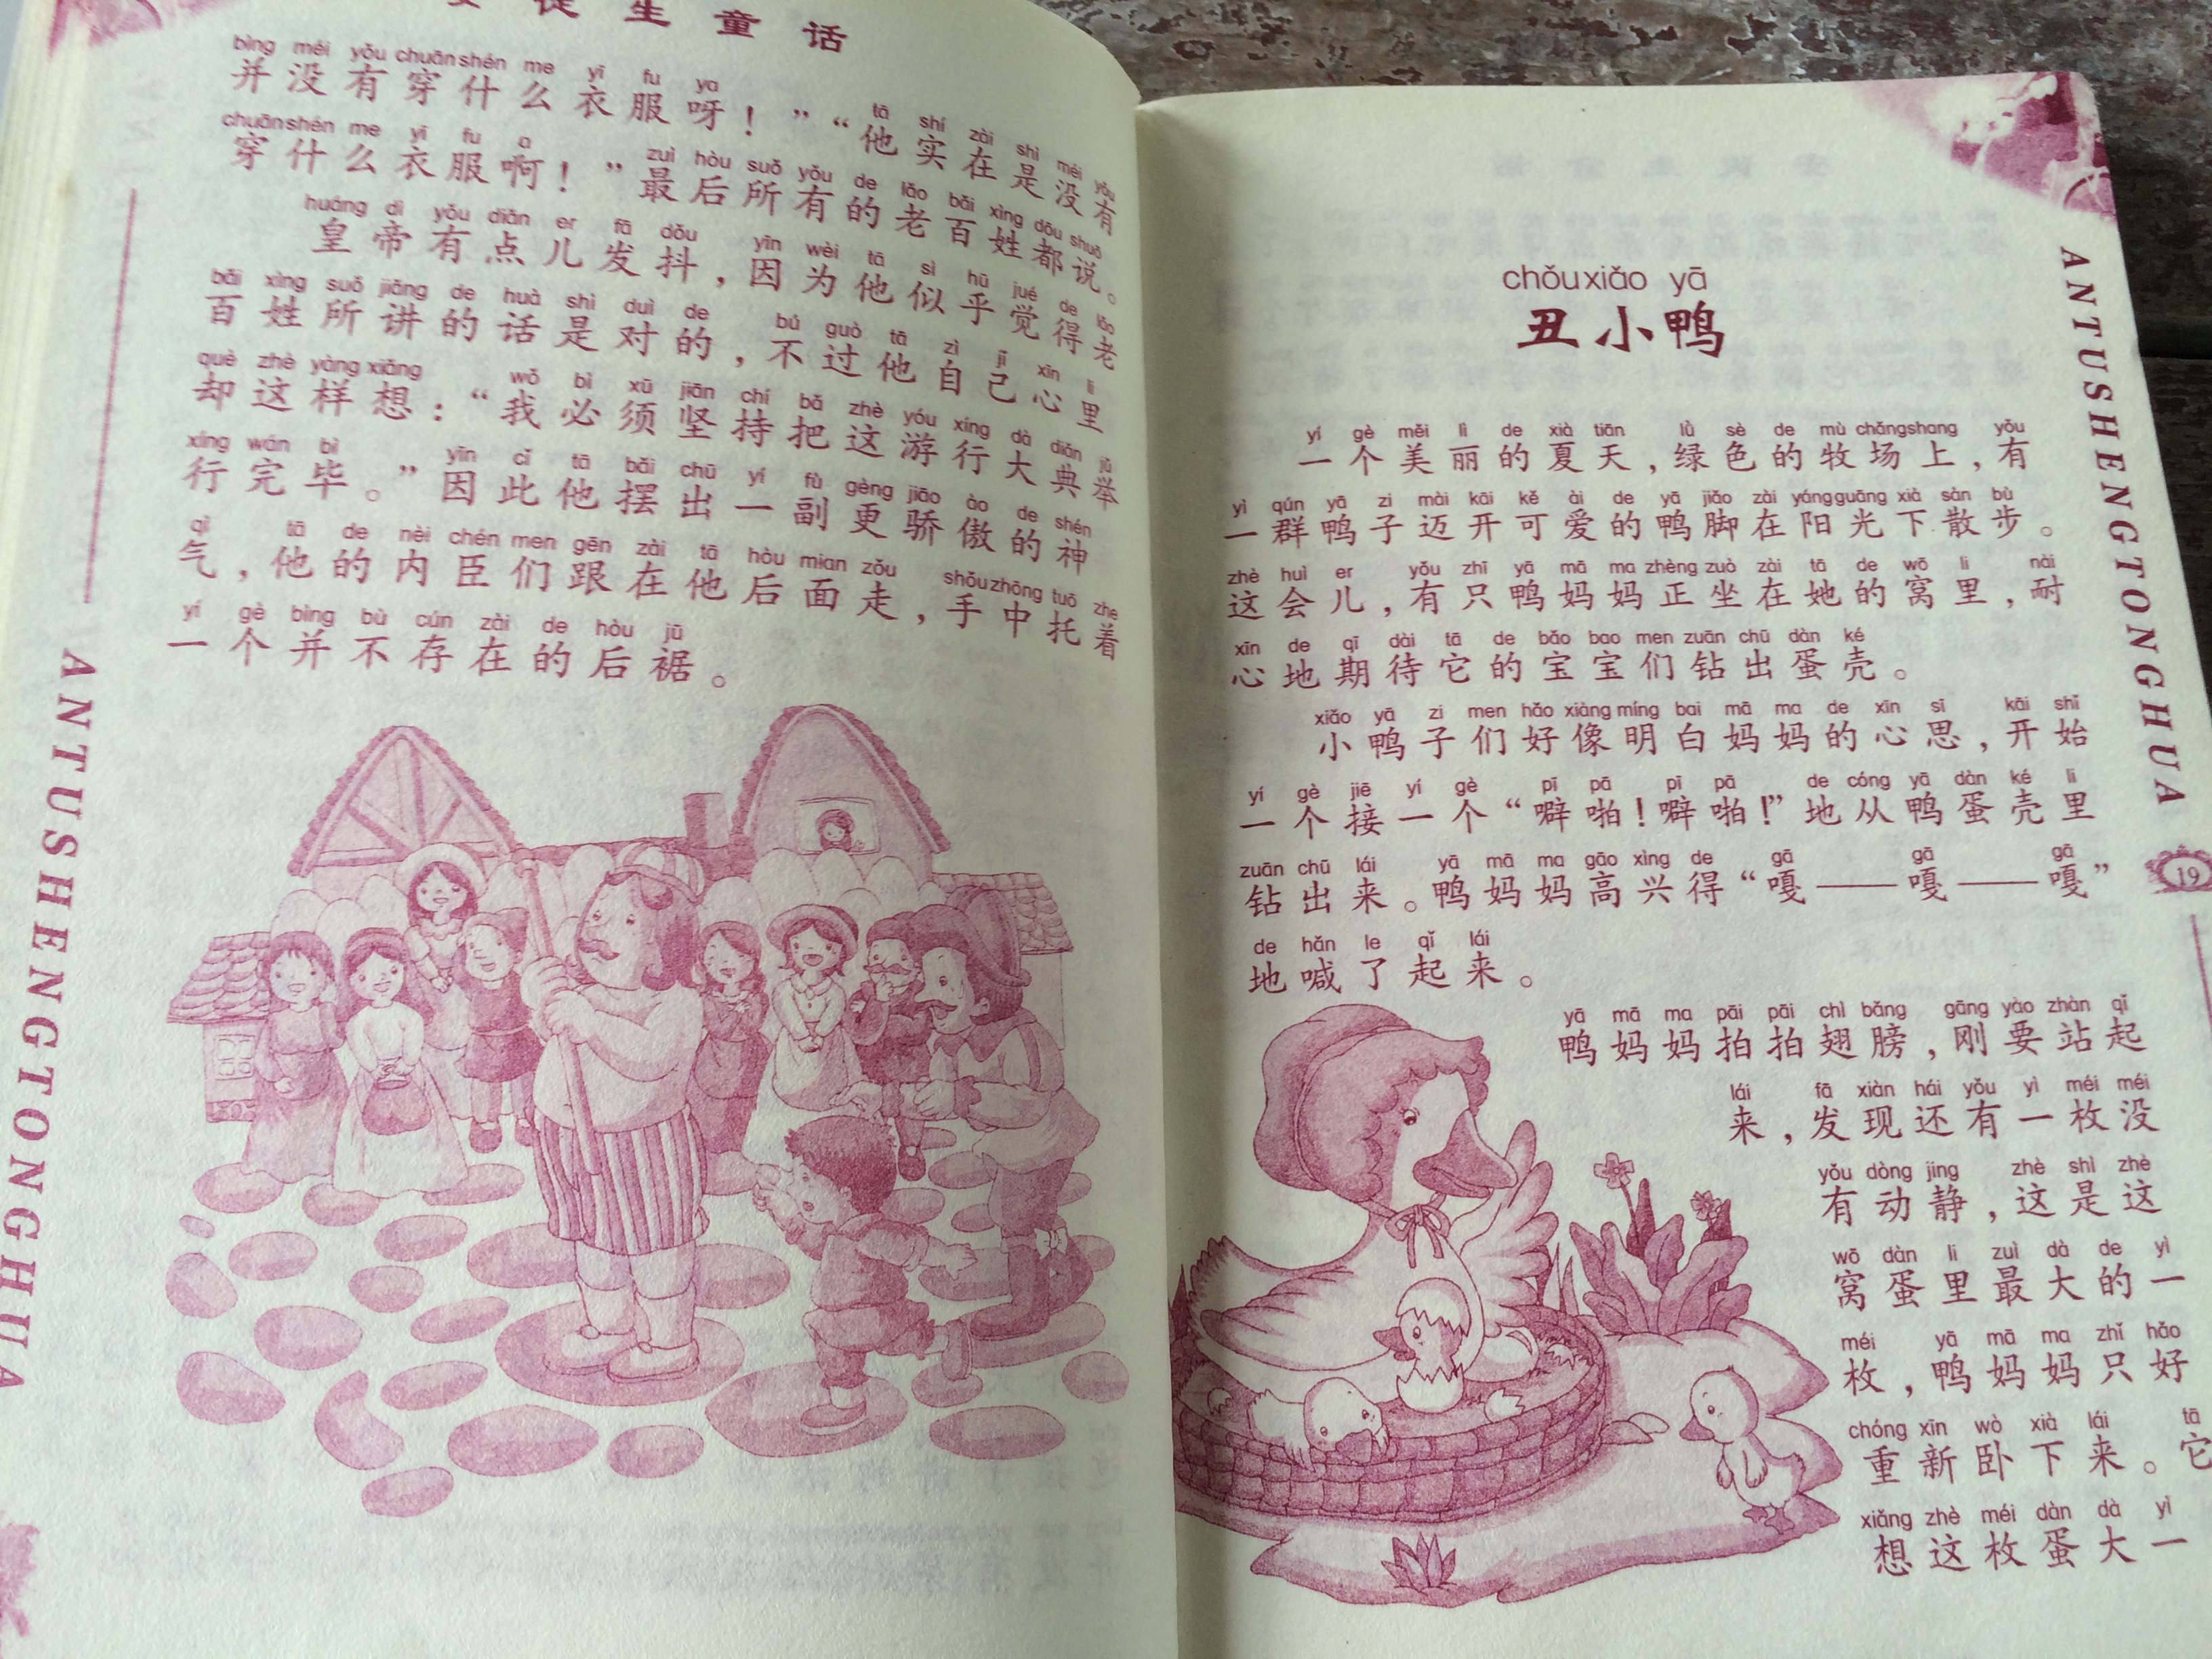 徒生童话
bìng méi yǒu chuān shén me yī fu ya
并没有穿什么衣服呀！”“他实在是没有
tā shí zài shì méi yǒu
chuān shén me yī fu a
穿什么衣服啊！”最后所有的老百姓都说。
zuì hòu suǒ yǒu de lǎo bǎi xìng dōu shuō
huáng dì yǒu diǎn er fā dǒu yīn wèi tā sì hū jué de lǎo
皇帝有点儿发抖，因为他似乎觉得老
bǎi xìng suǒ jiǎng de huà shì duì de bú guò tā zì jǐ xīn li
百姓所讲的话是对的，不过他自己心里
què zhè yàng xiǎng wǒ bì xū jiān chí bǎ zhè yóu xíng dà diǎn jǔ
却这样想：“我必须坚持把这游行大典举
xíng wán bì yīn cǐ tā bǎi chū yí fù gèng jiāo ào de shén
行完毕。”因此他摆出一副更骄傲的神
qì tā de nèi chén men gēn zài tā hòu mian zǒu shǒu zhōng tuō zhe
气，他的内臣们跟在他后面走，手中托着
yí gè bìng bù cún zài de hòu jū
一个并不存在的后裾。
ANTUSHENGTONGHUA
chǒu xiǎo yā
丑小鸭
yí gè měi lì de xià tiān lǜ sè de mù chǎng shang yǒu
一个美丽的夏天，绿色的牧场上，有
yì qún yā zi mài kāi kě ài de yā jiǎo zài yáng guāng xià sàn bù
一群鸭子迈开可爱的鸭脚在阳光下散步。
zhè huì er yǒu zhī yā mā ma zhèng zuò zài tā de wō li nài
这会儿，有只鸭妈妈正坐在她的窝里，耐
xīn de qī dài tā de bǎo bao men zuān chū dàn ké
心地期待它的宝宝们钻出蛋壳。
xiǎo yā zi men hǎo xiàng míng bai mā ma de xīn sī kāi shǐ
小鸭子们好像明白妈妈的心思，开始
yí gè jiē yí gè pī pā pī pā de cóng yā dàn ké li
一个接一个“噼啪！噼啪！”地从鸭蛋壳里
zuān chū lái yā mā ma gāo xìng de gā gā gā
钻出来。鸭妈妈高兴得“嘎——嘎——嘎”
de hǎn le qǐ lái
地喊了起来。
yā mā ma pāi pāi chì bǎng gāng yào zhàn qǐ
鸭妈妈拍拍翅膀，刚要站起
lái fā xiàn hái yǒu yì méi méi
来，发现还有一枚没
yǒu dòng jing zhè shì zhè
有动静，这是这
wō dàn li zuì dà de yì
窝蛋里最大的一
méi yā mā ma zhǐ hǎo
枚，鸭妈妈只好
chóng xīn wò xià lái tā
重新卧下来。它
xiǎng zhè méi dàn dà yì
想这枚蛋大一
ANTUSHENGTONGHUA
19